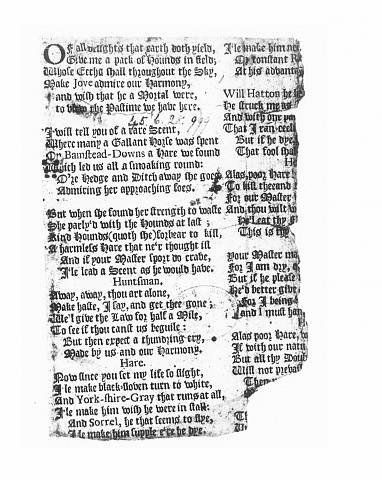 Of all delights that earth doth yield,
Give me a pack of Hounds in field;
Whose Eccho shall throughout the Sky,
Make Jove admire our Harmony,
and wish that he a Mortal were,
to view the Pastime we have here.
I will tell you of a rare Scent,
Where many a Gallant Horse was spent
On Bamstead-Downs a Hare we found
Which led us all a smoaking round:
O're Hedge and Ditch away she goes
Admiring her approaching foes.
But when she found her strength to waste
She parly'd with the Hounds at last
Kind Hounds, quoth she, forbear to kill,
A harmless Hare that ne'r thought ill
And if your Master sport do crave,
I'le lead a Scent as he would have.
Huntsman.
Away, away, thou art alone,
Make haste, I say, and get thee gone;
We'l give the Law for half a Mile,
To see if thou canst us beguile:
But then expect a thundring cry,
Made by us and our Harmony.
Hare.
Now since you set my life so slight,
I'le make black-sloven turn to white,
And York-shire-Gray that runs at all,
I'le make him wish he were in stall:
And Sorrel, he that seems to flye,
I'le make him supple e're he dye.
I'le make him
My constant
At his advant
Will Hatton he
He struck me
And with our
That I can
But if he dye
That fool shal
H
Alas, poor Hare
To kill thee and
For our Master
And thou wilt
He'l eat thy
This is thy
Your Master
For I am dry,
But if he please
He'd better give
For I being
and I must
Alas poor Hare,
If with our
But all thy
Will not
Then